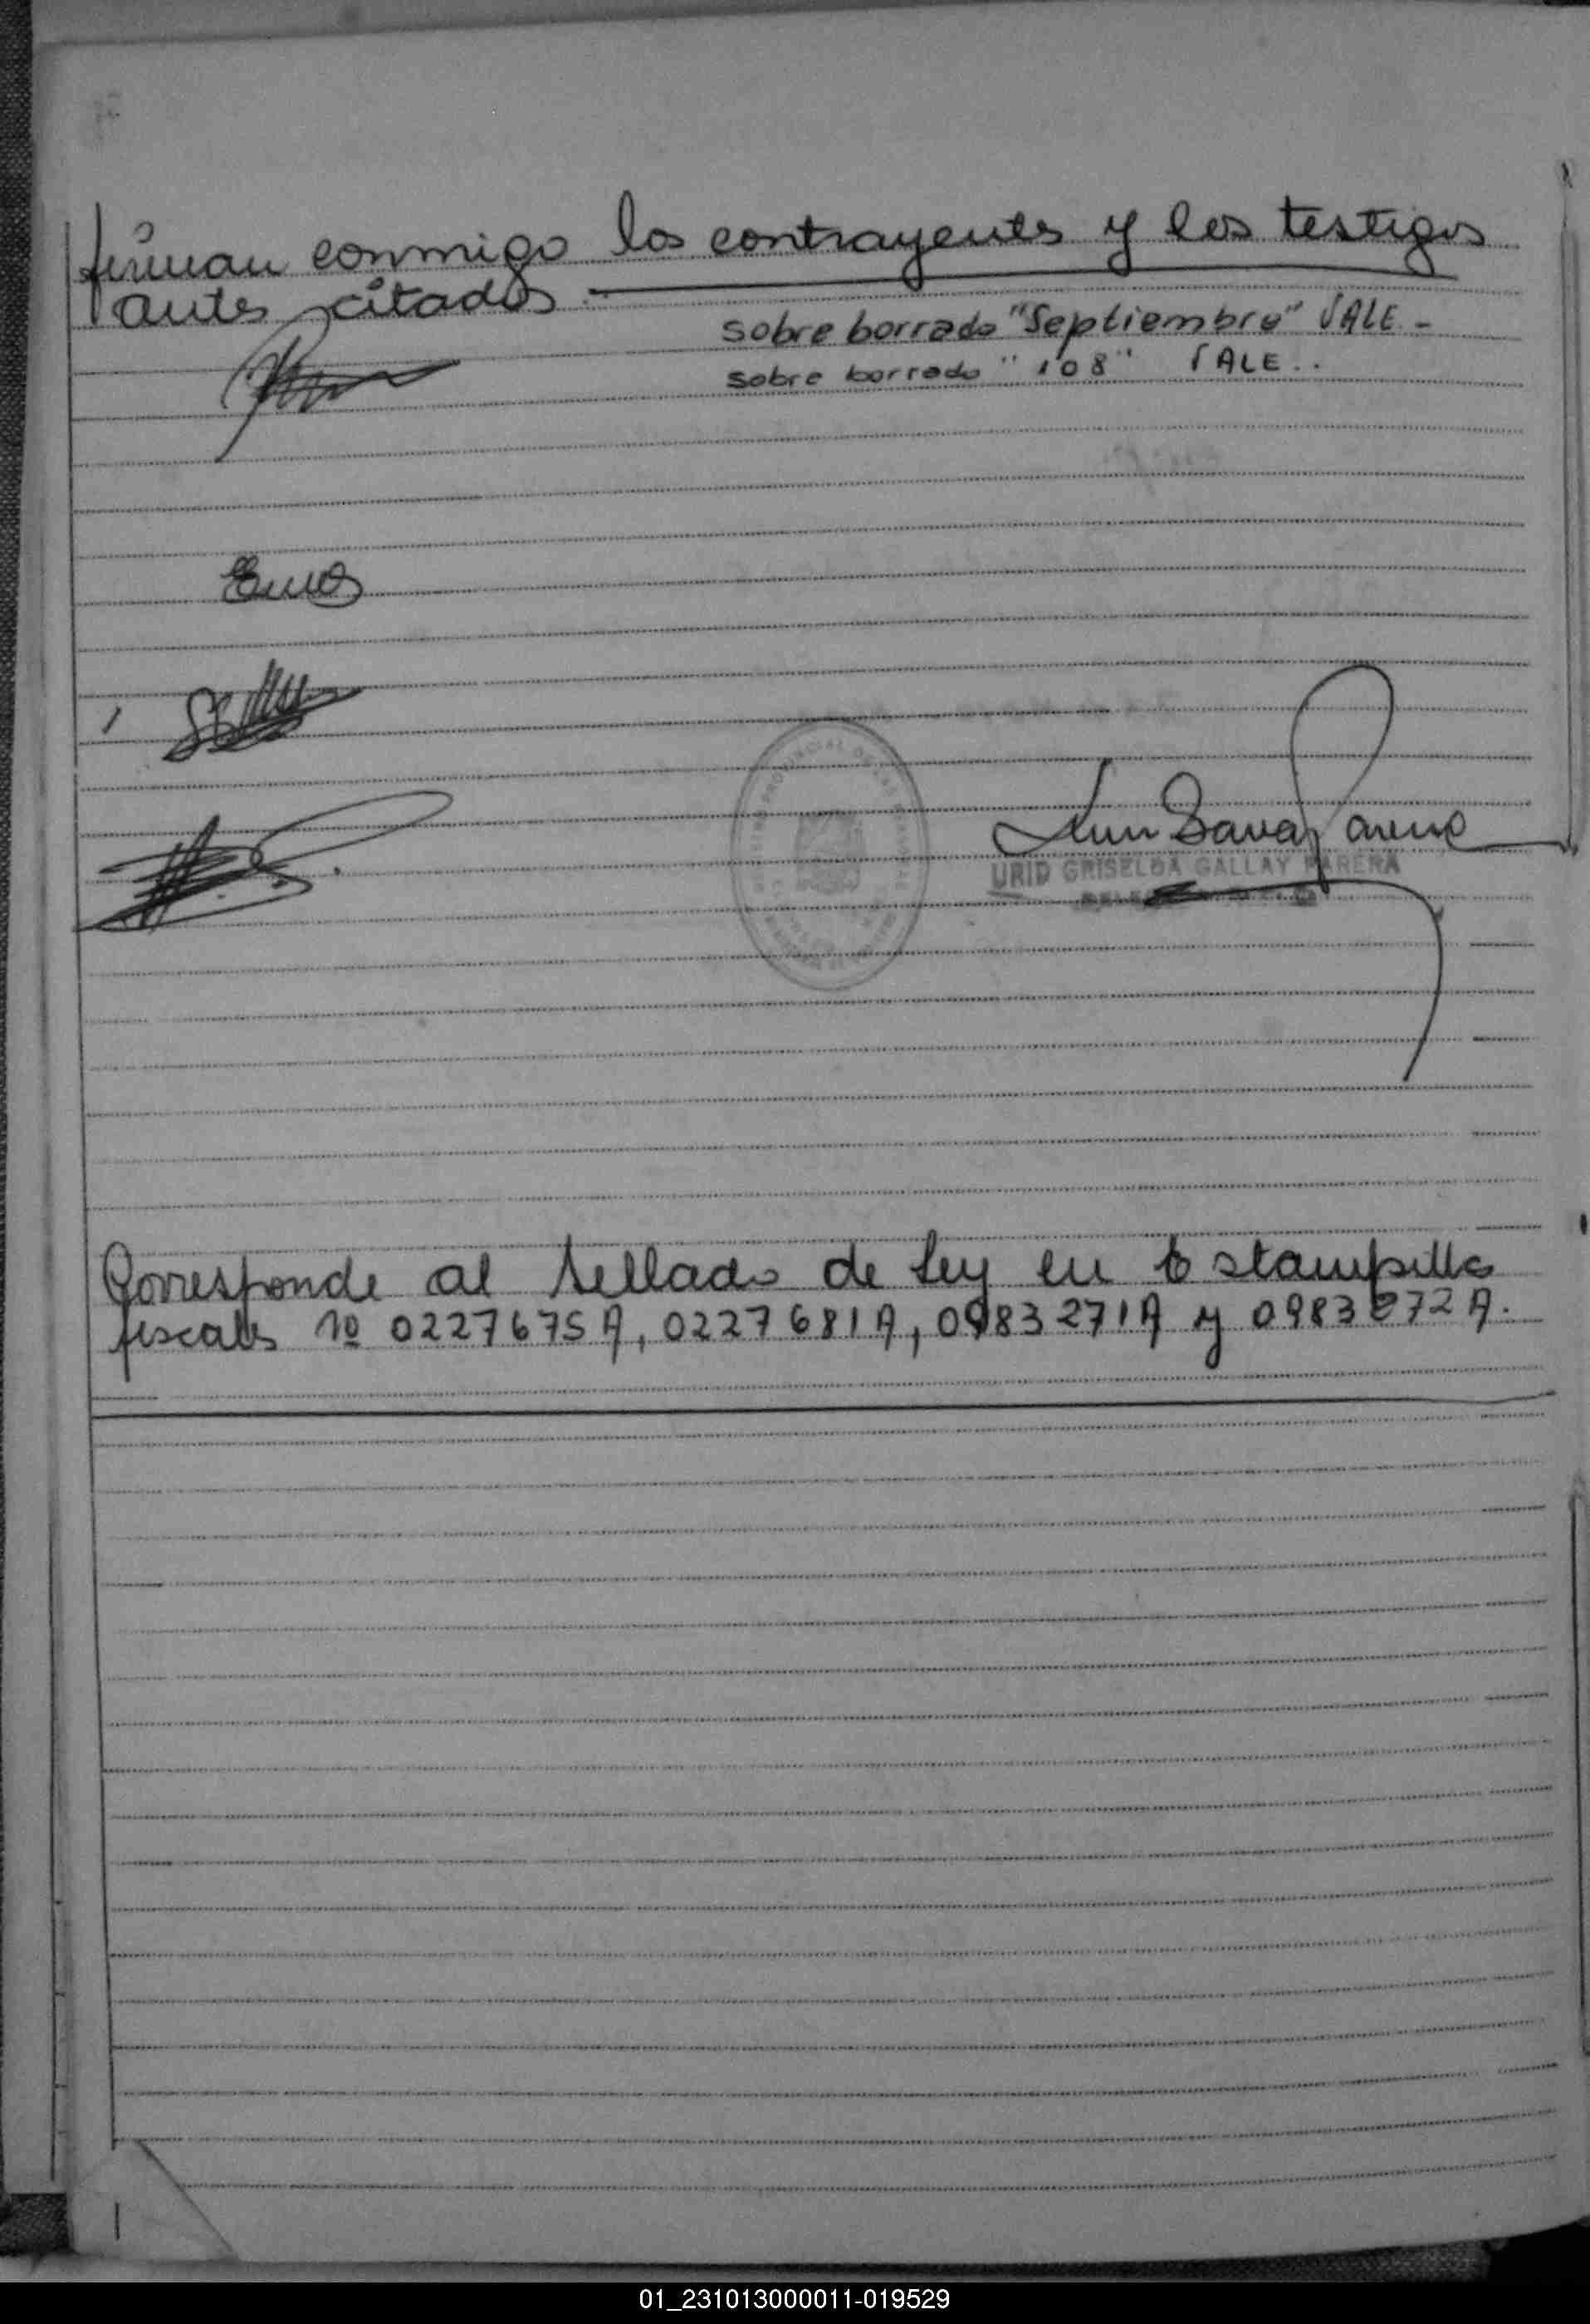 firman conmigo los contrayentes y los testigos
antes citados
sobre borrado "Septiembre" VALE.-
sobre borrado "108" VALE..
URID GRISELDA GALLAY PARERA
Corresponde al sellado de Ley en Estampilla
fiscales Nº 0227675A, 0227681A, 0983271A y 0983272A.
01_231013000011-019529